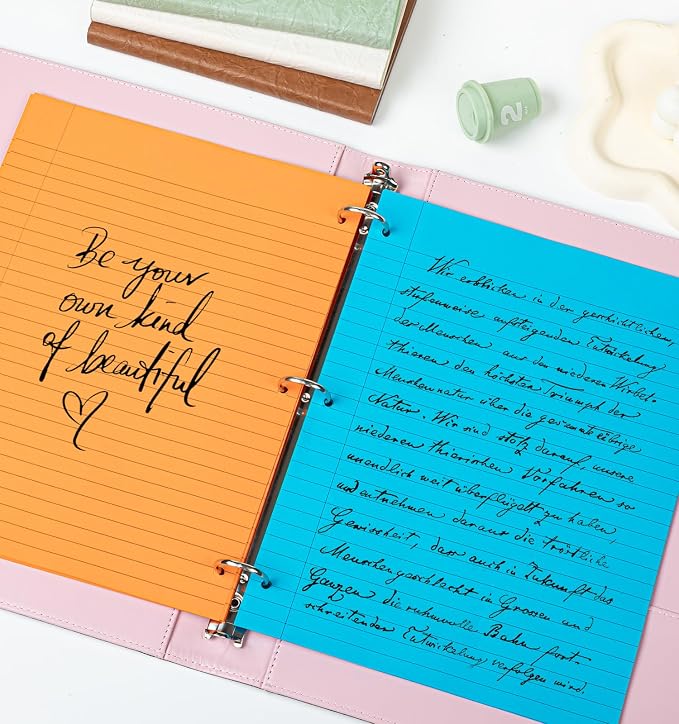 Be your
own kind
of beautiful
Wir erblicken in der geschichtlichen,
stufenweise aufsteigenden Entwickelung
des Menschen aus den niederen Wirbel-
thieren den höchsten Triumph der
Menschennatur über die gesammte übrige
Natur. Wir sind stolz darauf, unsere
niederen thierischen Vorfahren so
unendlich weit überflügelt zu haben,
und entnehmen daraus die tröstliche
Gewissheit, dass auch in Zukunft das
Menschengeschlecht im Grossen und
Ganzen die ruhmvolle Bahn fort-
schreitender Entwickelung verfolgen wird.
2